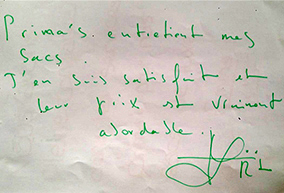 Prima's entretient mes
sacs.
J'en suis satisfait et
leur prix est vraiment
abordable.
R L